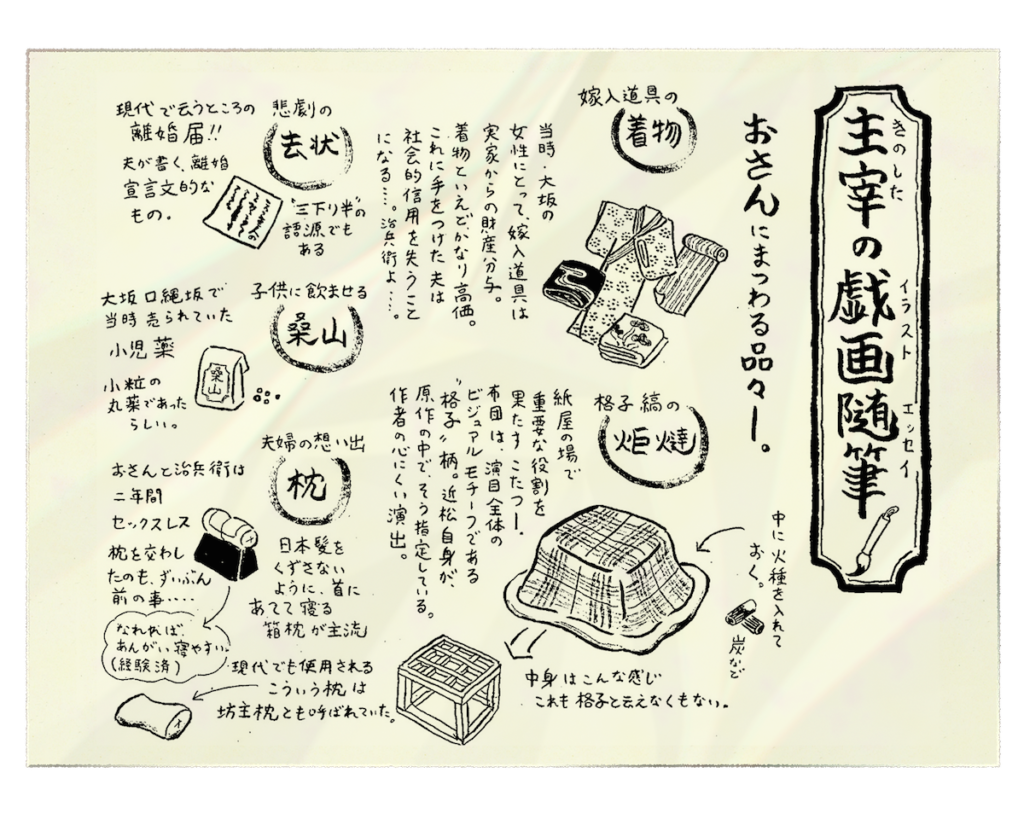 主宰の戯画随筆
きのした
イラスト
エッセイ
おさんにまつわる品々ー。
嫁入道具の
着物
当時・大坂の
女性にとって、嫁入道具は
実家からの財産分与。
着物といえど、かなり高価。
これに手をつけた夫は
社会的信用を失うこと
になる…。治兵衛よ…。
格子縞の
炬燵
紙屋の場で
重要な役割を
果たすこたつー。
布団は、演目全体の
ビジュアルモチーフである
"格子"柄。近松自身が、
原作の中で、そう指定している。
作者の心にくい演出。
中に火種を入れて
おく。
炭など
中身はこんな感じ
これも格子と云えなくもない。
悲劇の
去状
現代で云うところの
離婚届!!
夫が書く、離婚
宣言文的な
もの。
"三下り半"の
語源でも
ある
子供に飲ませる
桑山
大坂口縄坂で
当時売られていた
小児薬
桑山
小粒の
丸薬であった
らしい。
夫婦の想い出
枕
おさんと治兵衛は
二年間
セックスレス
枕を交わし
たのも、ずいぶん
前の事・・・・
日本髪を
くずさない
ように、首に
あてて寝る
箱枕が主流
なれれば
あんがい寝やすい。
(経験済)
現代でも使用される
こういう枕は
坊主枕とも呼ばれていた。